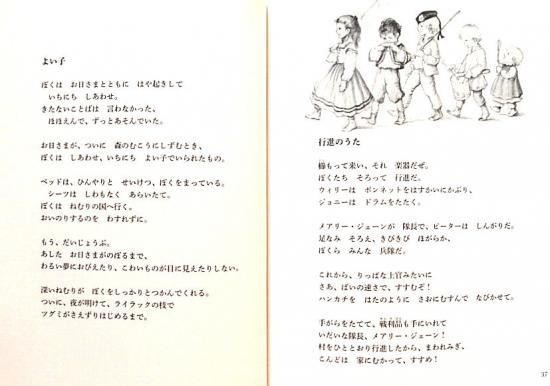 よい子
ぼくは お日さまとともに はや起きして
いちにち しあわせ。
きたないことばは 言わなかった、
ほほえんで、ずっとあそんでいた。
お日さまが、ついに 森のむこうにしずむとき、
ぼくは しあわせ、いちにち よい子でいられたもの。
ベッドは、ひんやりと せいけつ、ぼくをまっている。
シーツは しわもなく あらいたて。
ぼくは ねむりの国へ行く。
おいのりするのを わすれずに。
もう、だいじょうぶ。
あした お日さまがのぼるまで、
わるい夢におびえたり、こわいものが目に見えたりしない。
深いねむりが ぼくをしっかりとつかんでくれる。
ついに、夜が明けて、ライラックの枝で
ツグミがさえずりはじめるまで。
行進のうた
櫛もって来い、それ 楽器だぜ。
ぼくたち そろって 行進だ。
ウィリーは ボンネットをはすかいにかぶり、
ジョニーは ドラムをたたく。
メアリー・ジェーンが 隊長で、ピーターは しんがりだ。
足なみ そろえ、きびきび ほがらか、
ぼくら みんな 兵隊だ。
これから、りっぱな上官みたいに
さあ、ばいの速さで、すすむぞ!
ハンカチを はたのように さおにむすんで なびかせて。
手がらをたてて、戦利品も手にいれて
いだいな隊長、メアリー・ジェーン!
村をひととおり行進したから、まわれみぎ、
こんどは 家にむかって、すすめ!
37